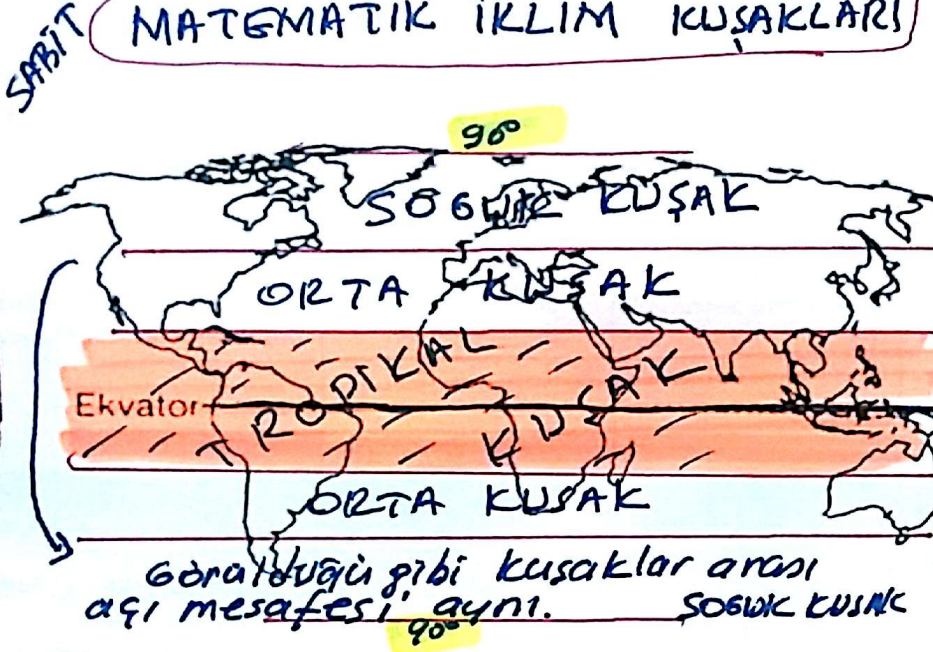 SABİT
MATEMATİK İKLİM KUŞAKLARI
90°
SOĞUK KUŞAK
ORTA KUŞAK
TROPİKAL KUŞAK
Ekvator
ORTA KUŞAK
Görüldüğü gibi kuşaklar arası
açı mesafesi aynı.
SOĞUK KUŞAK
90°